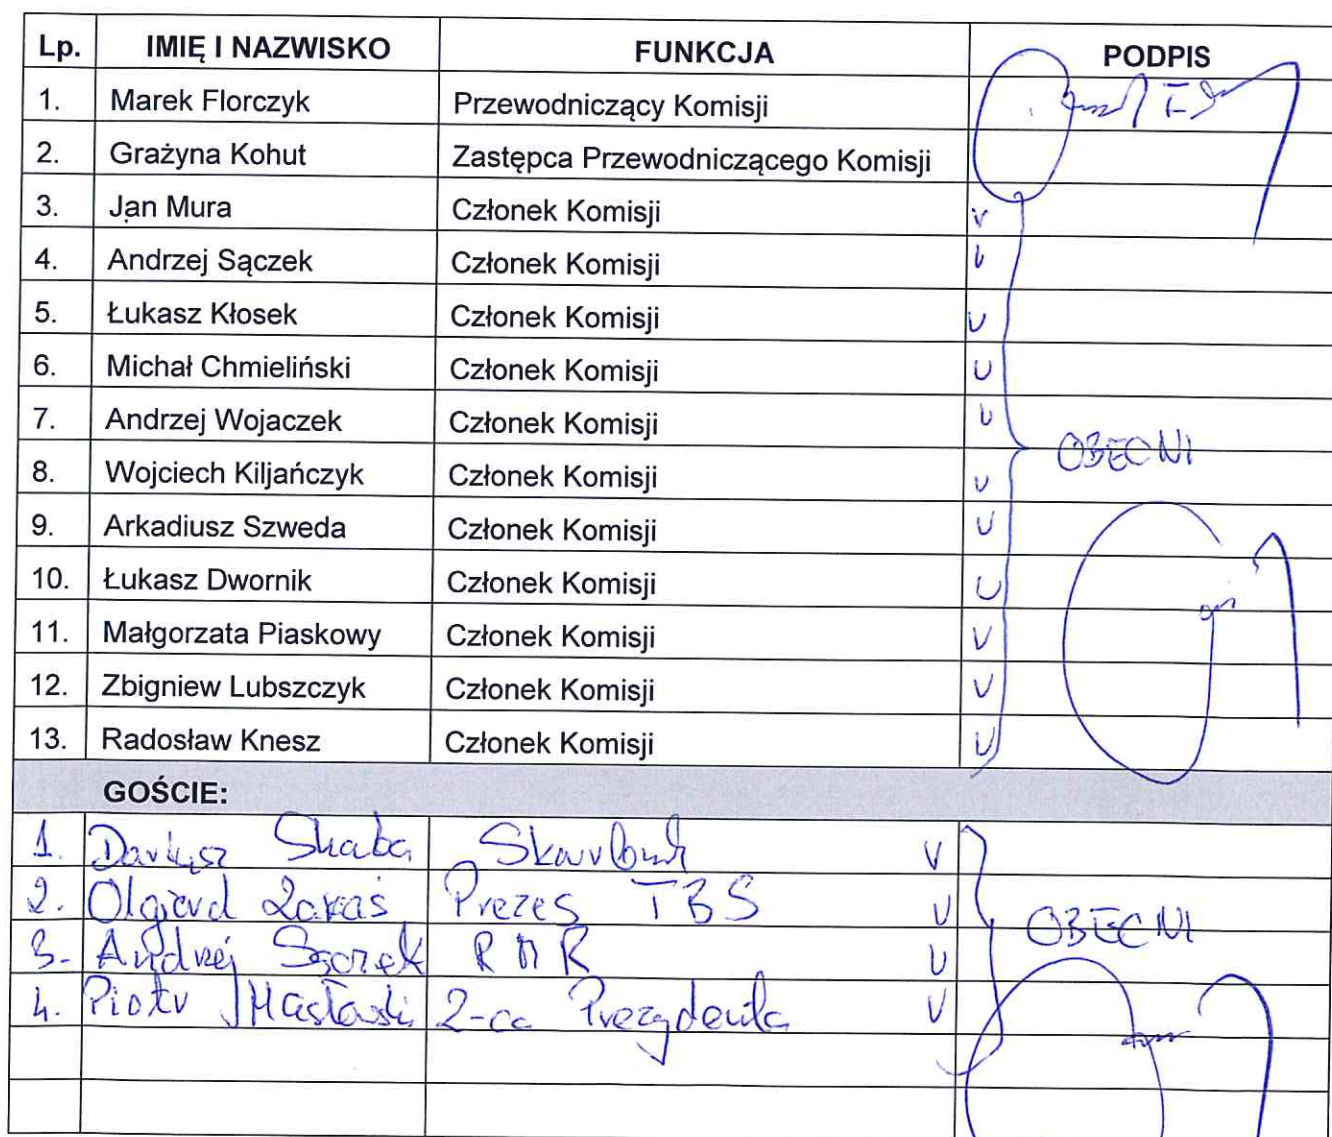 Lp. IMIĘ I NAZWISKO FUNKCJA PODPIS
1. Marek Florczyk Przewodniczący Komisji
2. Grażyna Kohut Zastępca Przewodniczącego Komisji
3. Jan Mura Członek Komisji v
4. Andrzej Sączek Członek Komisji v
5. Łukasz Kłosek Członek Komisji v
6. Michał Chmieliński Członek Komisji v
7. Andrzej Wojaczek Członek Komisji v
OBECNI
8. Wojciech Kiljańczyk Członek Komisji v
9. Arkadiusz Szweda Członek Komisji v
10. Łukasz Dwornik Członek Komisji v
11. Małgorzata Piaskowy Członek Komisji v
12. Zbigniew Lubszczyk Członek Komisji v
13. Radosław Knesz Członek Komisji v
GOŚCIE:
1. Dariusz Skaba Skarbnik V
2. Olgierd Prezes TBS V
OBECNI
3. Andrzej RMR V
4. Piotr Masłowski Z-ca Prezydenta V